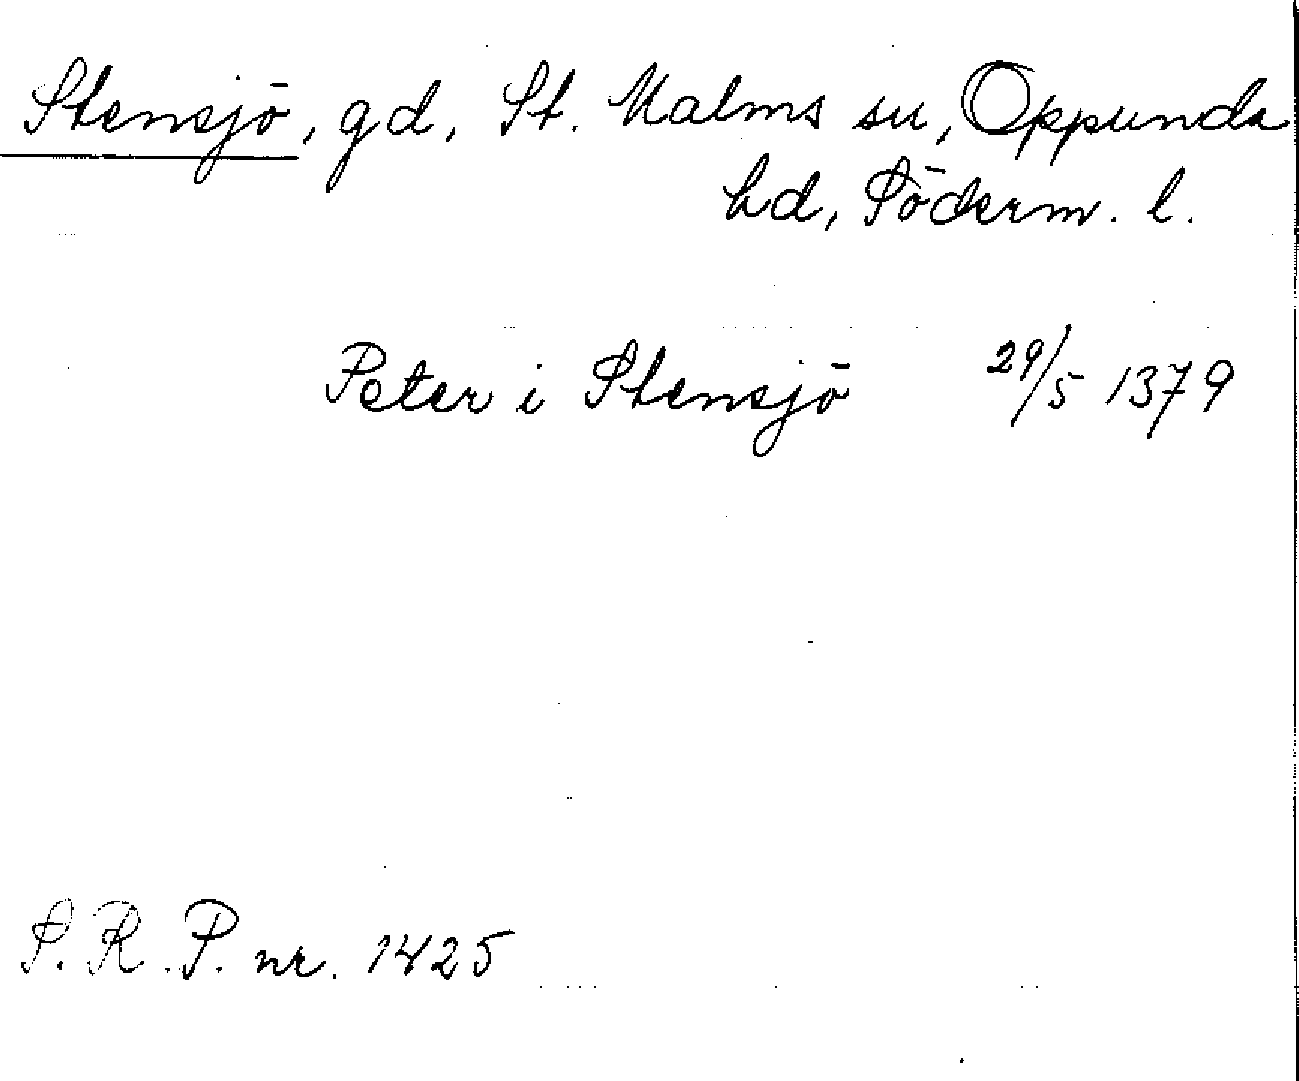 Stensjö, gd, St. Malms sn, Oppunda
hd, Söderm. l.
Peter i Stensjö 29/5 1379
S.R.P. nr. 1425